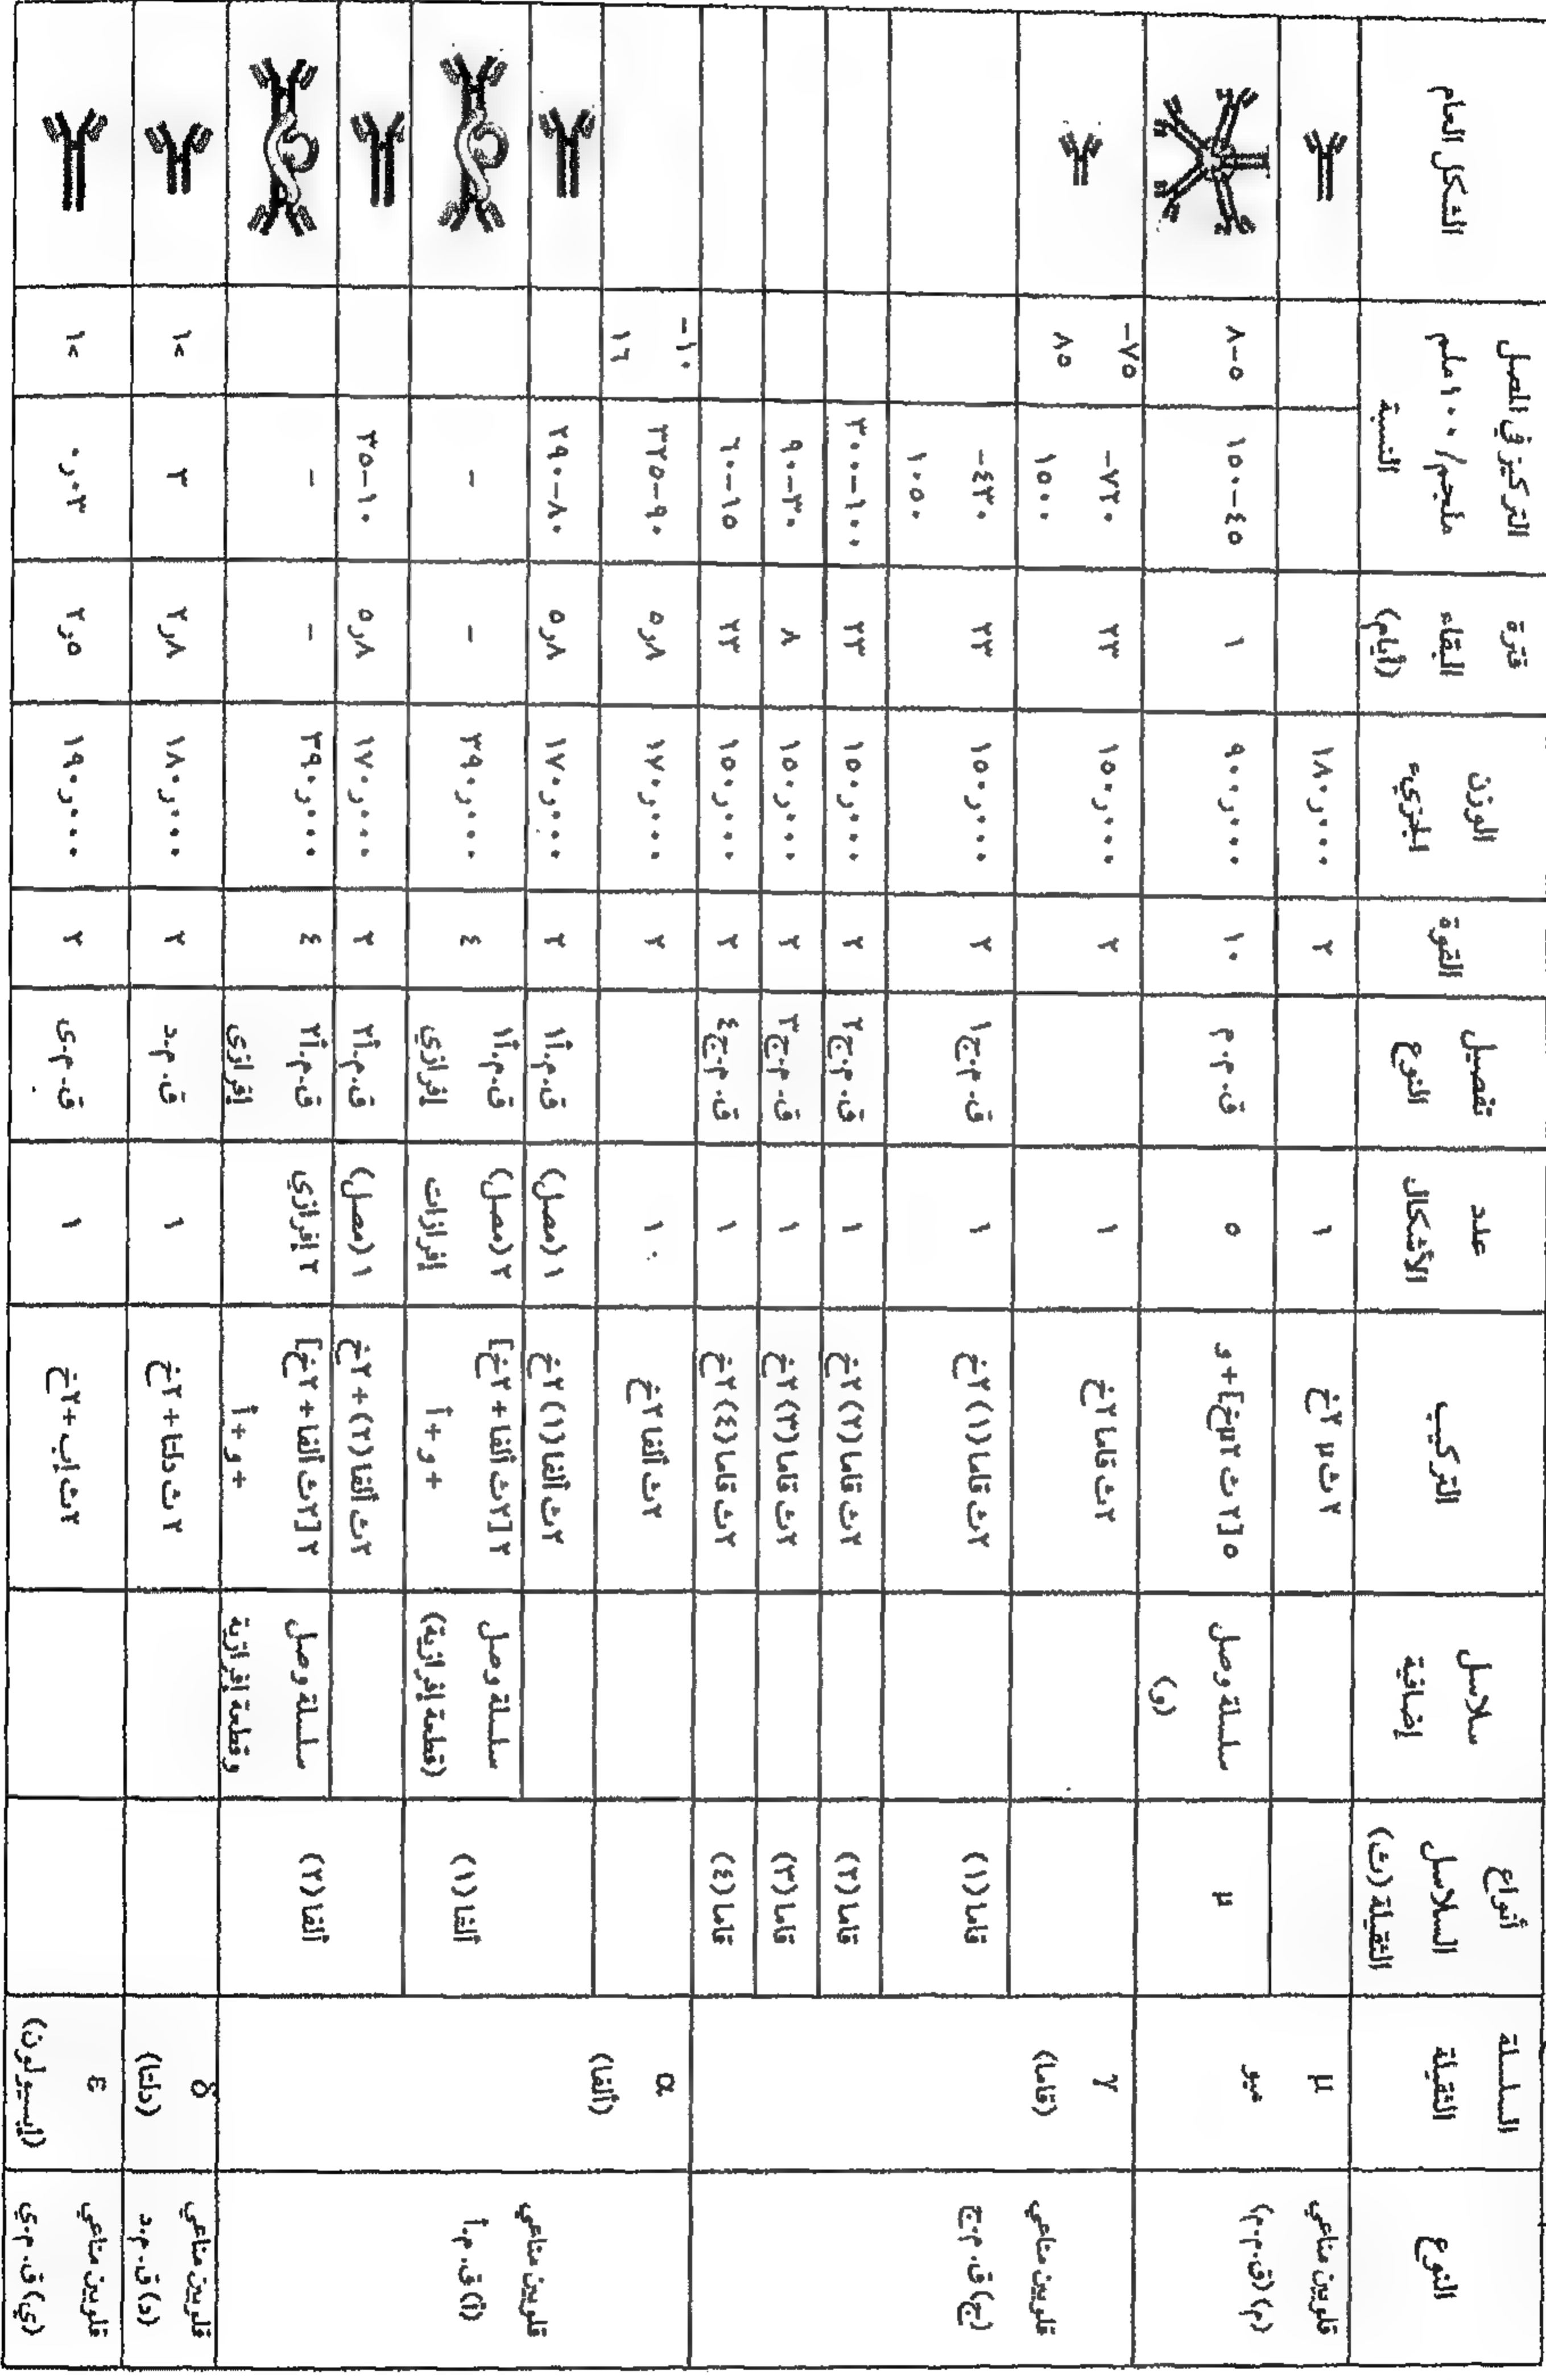 النوع
السلسلة الثقيلة
أنواع السلاسل الثقيلة (ث)
سلاسل إضافية
التركيب
عدد الأشكال
تفصيل النوع
القوة
الوزن الجزيء
فترة البقاء (أيام)
التركيز في المصل ملجم/١٠٠ملم
النسبة
الشكل العام
قلوبين مناعي (م) (ق.م.م)
μ
ميو
٢ث μ ٢خ
١
٢
١٨٠,٠٠٠
μ
سلسلة وصل (و)
٥ [٢ث μ٢خ]+و
٥
ق.م.م
١٠
٩٠٠,٠٠٠
١
٤٥-١٥٠
٥-٨
قلوبين مناعي (ج) ق.م.ج
γ
(قاما)
٢ث قاما ٢خ
١
٢
١٥٠,٠٠٠
٢٣
٧٢٠-١٥٠٠
٧٥-٨٥
قاما (١)
٢ث قاما (١) ٢خ
١
ق.م.ج١
٢
١٥٠,٠٠٠
٢٣
٤٣٠-١٠٥٠
قاما (٢)
٢ث قاما (٢) ٢خ
١
ق.م.ج٢
٢
١٥٠,٠٠٠
٢٣
١٠٠-٣٠٠
قاما (٣)
٢ث قاما (٣) ٢خ
١
ق.م.ج٣
٢
١٥٠,٠٠٠
٨
٣٠-٩٠
قاما (٤)
٢ث قاما (٤) ٢خ
١
ق.م.ج٤
٢
١٥٠,٠٠٠
٢٣
١٥-٦٠
قلوبين مناعي (أ) ق.م.أ
α
(ألفا)
٢ث ألفا ٢خ
١
٢
١٧٠,٠٠٠
٥,٨
٩٠-٣٢٥
١٠-١٦
ألفا (١)
٢ث ألفا (١) ٢خ
١ (مصل)
ق.م.أ١
٢
١٧٠,٠٠٠
٥,٨
٨٠-٢٩٠
سلسلة وصل (قطعة إفرازية)
٢ [٢ث ألفا + ٢خ] + و + أ
٢ (مصل) إفرازات
ق.م.أ١ إفرازي
٤
٣٩٠,٠٠٠
-
-
ألفا (٢)
٢ث ألفا (٢) + ٢خ
١ (مصل)
ق.م.أ٢
٢
١٧٠,٠٠٠
٥,٨
١٠-٣٥
سلسلة وصل وقطعة إفرازية
٢ [٢ث ألفا + ٢خ] + و + أ
٢ إفرازي
ق.م.أ٢ إفرازي
٤
٣٩٠,٠٠٠
-
-
قلوبين مناعي (د) ق.م.د
δ
(دلتا)
٢ث دلتا + ٢خ
١
ق.م.د
٢
١٨٠,٠٠٠
٢,٨
٣
<١
قلوبين مناعي (ي) ق.م.ي
ε
(إيسيولون)
٢ث إب + ٢خ
١
ق.م.ى
٢
١٩٠,٠٠٠
٢,٥
٠,٠٣
<١